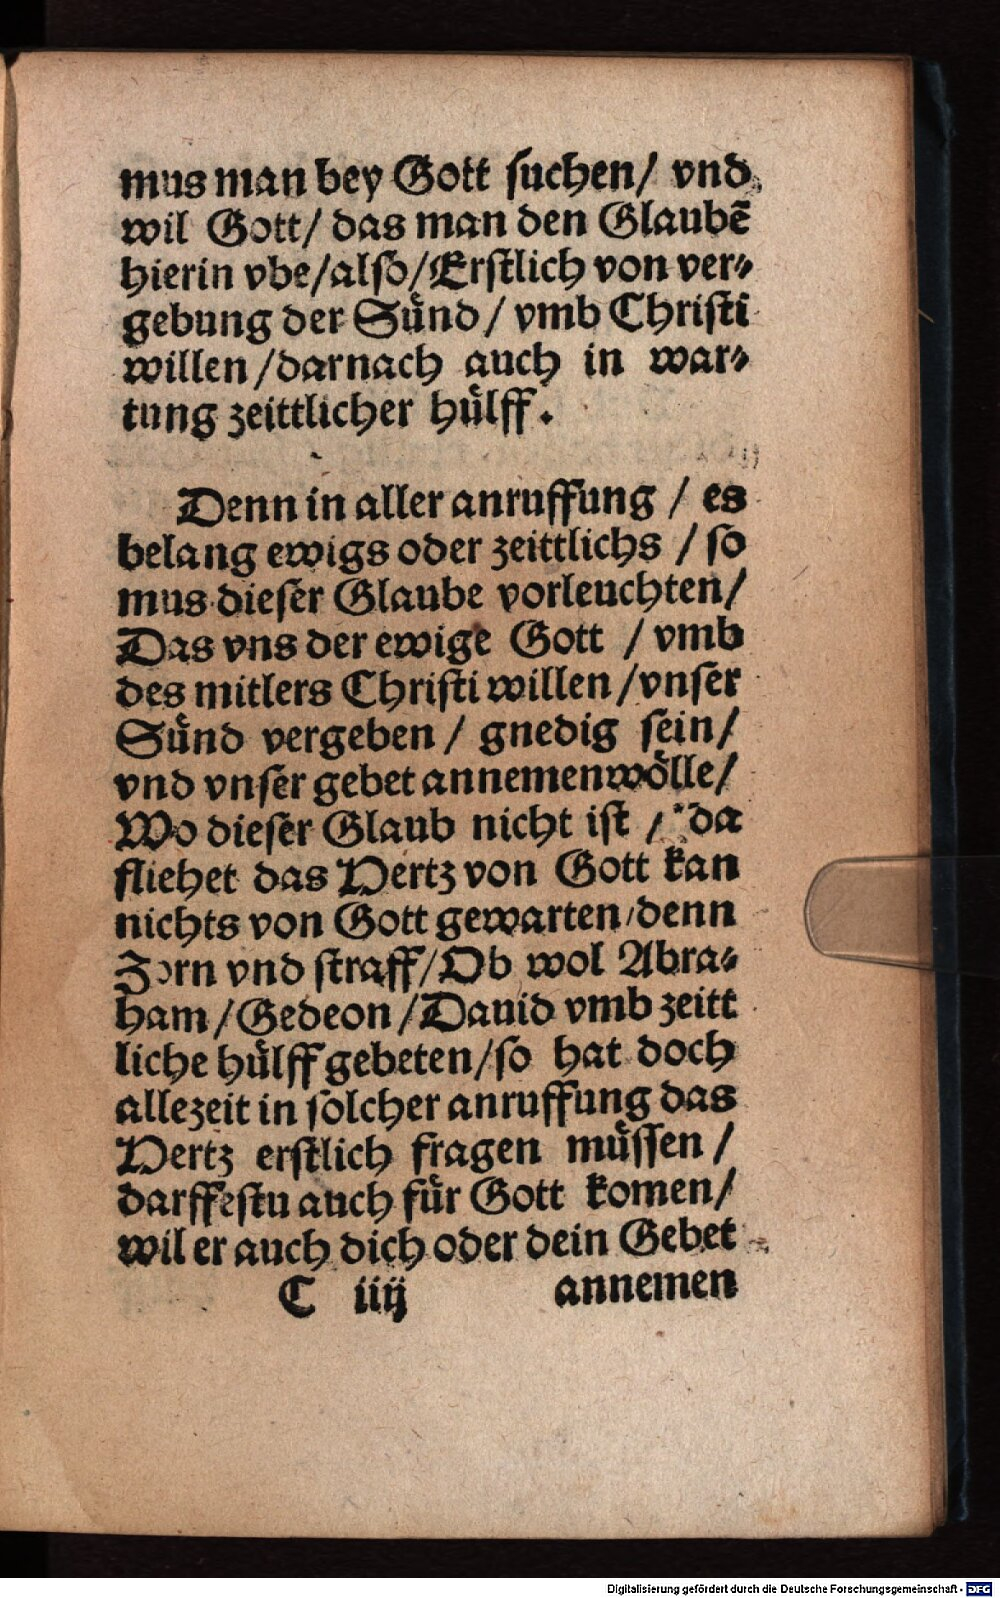 mus man bey Gott suchen/ vnd
wil Gott/ das man den Glaubē
hierin vbe/also/Erstlich von ver⸗
gebung der Sünd/ vmb Christi
willen/darnach auch in war⸗
tung zeittlicher hülff.
Denn in aller anruffung/ es
belang ewigs oder zeittlichs/so
mus dieser Glaube vorleuchten/
Das vns der ewige Gott/ vmb
des mitlers Christi willen/vnser
Sünd vergeben/ gnedig sein/
vnd vnser gebet annemen wölle/
Wo dieser Glaub nicht ist/ da
fliehet das Hertz von Gott kan
nichts von Gott gewarten/denn
Zorn vnd straff/Ob wol Abra⸗
ham/Gedeon/Dauid vmb zeitt
liche hülff gebeten/so hat doch
allezeit in solcher anruffung das
Hertz erstlich fragen müssen/
darffestu auch für Gott komen/
wil er auch dich oder dein Gebet
C iiij annemen
Digitalisierung gefördert durch die Deutsche Forschungsgemeinschaft - DFG